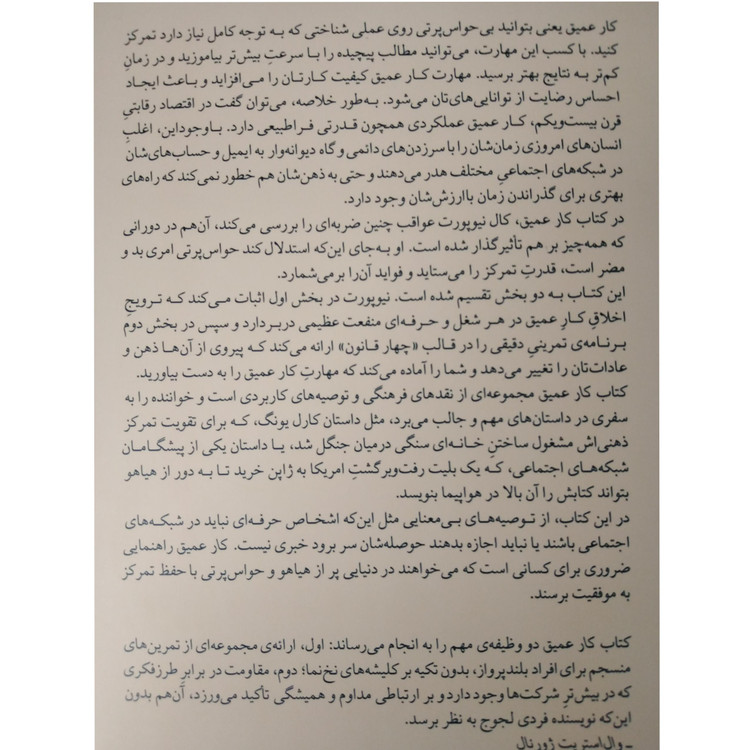 کار عمیق یعنی بتوانید بی‌حواس‌پرتی روی عملی شناختی که به توجه کامل نیاز دارد تمرکز
کنید. با کسب این مهارت، می‌توانید مطالب پیچیده را با سرعتِ بیش‌تر بیاموزید و در زمانِ
کم‌تر به نتایج بهتر برسید. مهارت کار عمیق کیفیت کارتان را می‌افزاید و باعث ایجاد
احساس رضایت از توانایی‌های‌تان می‌شود. به‌طور خلاصه، می‌توان گفت در اقتصاد رقابتیِ
قرن بیست‌ویکم، کار عمیق عملکردی همچون قدرتی فراطبیعی دارد. باوجوداین، اغلبِ
انسان‌های امروزی زمان‌شان را با سرزدن‌های دائمی و گاه دیوانه‌وار به ایمیل و حساب‌های‌شان
در شبکه‌های اجتماعیِ مختلف هدر می‌دهند و حتی به ذهن‌شان هم خطور نمی‌کند که راه‌های
بهتری برای گذراندن زمان باارزش‌شان وجود دارد.
در کتاب کار عمیق، کال نیوپورت عواقب چنین ضربه‌ای را بررسی می‌کند، آن‌هم در دورانی
که همه‌چیز بر هم تأثیرگذار شده است. او به‌جای این‌که استدلال کند حواس‌پرتی امری بد و
مضر است، قدرتِ تمرکز را می‌ستاید و فواید آن‌را برمی‌شمارد.
این کتاب به دو بخش تقسیم شده است. نیوپورت در بخش اول اثبات می‌کند که ترویجِ
اخلاقِ کارِ عمیق در هر شغل و حرفه‌ای منفعت عظیمی دربردارد و سپس در بخش دوم
برنامه‌ی تمرینیِ دقیقی را در قالب «چهار قانون» ارائه می‌کند که پیروی از آن‌ها ذهن و
عادات‌تان را تغییر می‌دهد و شما را آماده می‌کند که مهارتِ کار عمیق را به دست بیاورید.
کتاب کار عمیق مجموعه‌ای از نقدهای فرهنگی و توصیه‌های کاربردی است و خواننده را به
سفری در داستان‌های مهم و جالب می‌برد، مثل داستان کارل یونگ، که برای تقویت تمرکز
ذهنی‌اش مشغول ساختنِ خانه‌ای سنگی درمیان جنگل شد، یا داستان یکی از پیشگامان
شبکه‌های اجتماعی، که یک بلیت رفت‌وبرگشتِ امریکا به ژاپن خرید تا به دور از هیاهو
بتواند کتابش را آن بالا در هواپیما بنویسد.
در این کتاب، از توصیه‌های بی‌معنایی مثل این‌که اشخاص حرفه‌ای نباید در شبکه‌های
اجتماعی باشند یا نباید اجازه بدهند حوصله‌شان سر برود خبری نیست. کار عمیق راهنمایی
ضروری برای کسانی است که می‌خواهند در دنیایی پر از هیاهو و حواس‌پرتی با حفظ تمرکز
به موفقیت برسند.
کتاب کار عمیق دو وظیفه‌ی مهم را به انجام می‌رساند: اول، ارائه‌ی مجموعه‌ای از تمرین‌های
منسجم برای افراد بلندپرواز، بدون تکیه بر کلیشه‌های نخ‌نما؛ دوم، مقاومت در برابرِ طرزفکری
که در بیش‌ترِ شرکت‌ها وجود دارد و بر ارتباطی مداوم و همیشگی تأکید می‌ورزد، آن‌هم بدون
این‌که نویسنده فردی لجوج به نظر برسد.
ـ وال‌استریت ژورنال